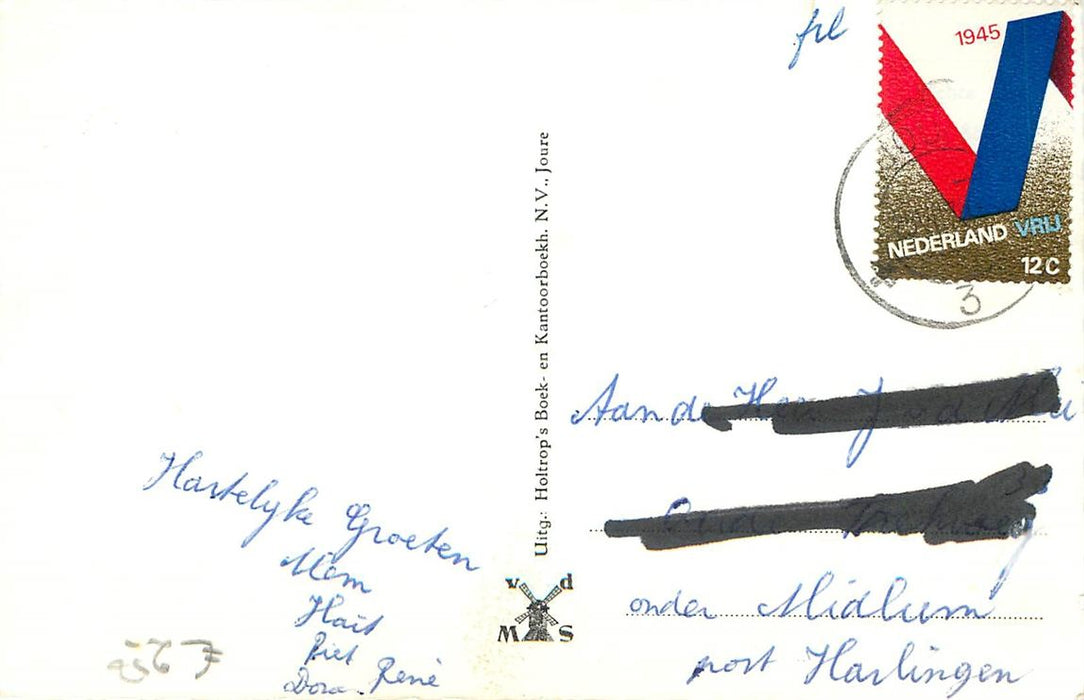 frl
1945
NEDERLAND VRIJ
12 C
3
Uitg.: Holtrop's Boek- en Kantoorboekh. N.V., Joure
v d
M S
Hartelyke Groeten
Mem
Hait
Piet
Dora. René
Aan de Heer J
onder Midlum
post Harlingen